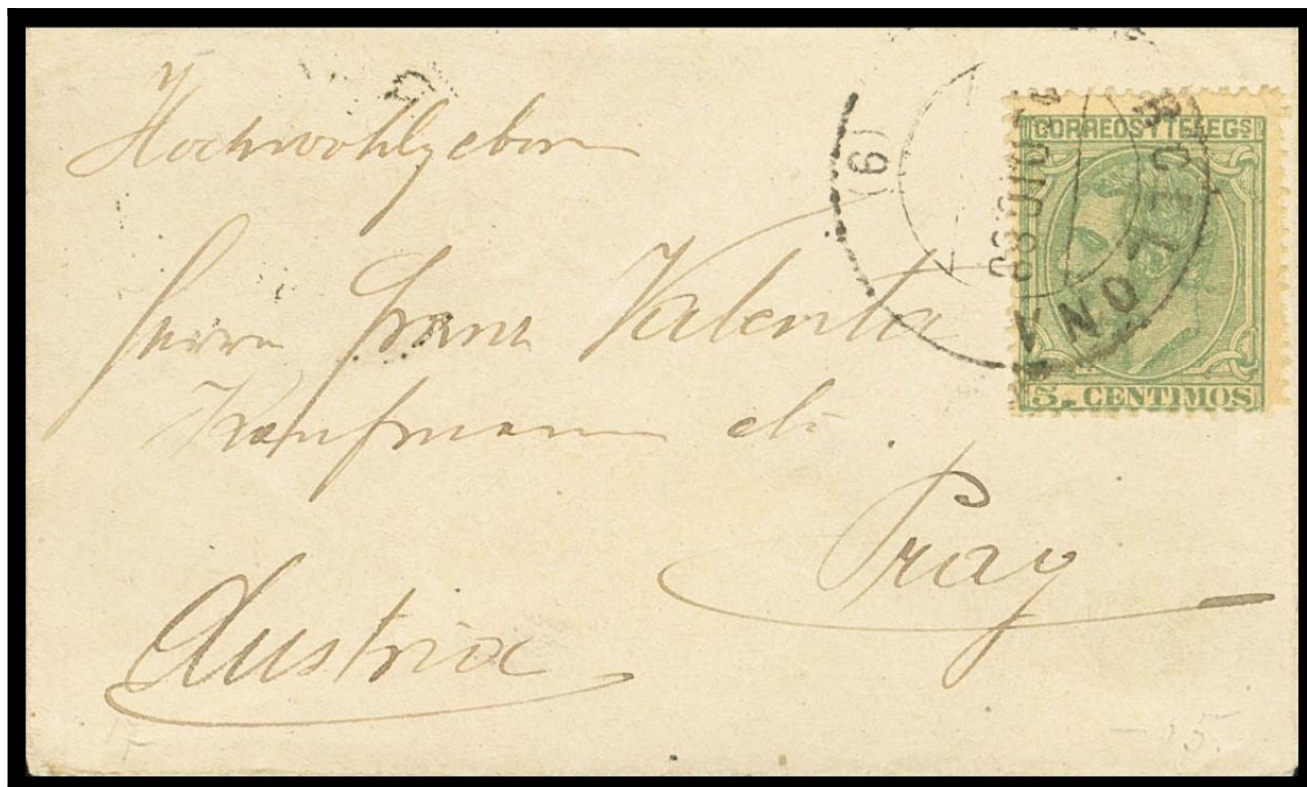 Hochwohlgeboren
Herrn Franz Valenta
Kaufmann etc.
Prag
Austria
CORREOS Y TELEGS
5 CENTIMOS
BARCELONA
(9)
5.